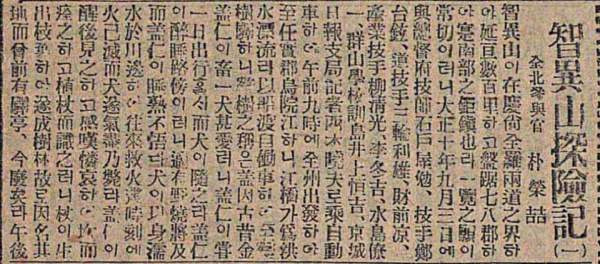 智異山探險記(一)
全北參與官 朴榮喆
智異山이在慶尙全羅兩道之界하
야延亘數百里하고盤踞七八郡하
야寔南部之鉅鎭也라一覽之願이
常切이러니大正十年九月三日에
與總督府技師石戶屋勉、技手鄭
台鉉、道技手三輪利雄、財前凉、
産業技手柳淸光、李冬吉、水島僚
一、群山學校訓島井上恒吉、京城
日報支局記者西木曉天으로乘自動
車하야午前九時에全州出發하야
至任實郡烏院江하니江橋가爲洪
水漂流라以船渡自働車하고至獒
樹驛하니獒樹之稱은盖因古昔金
盖仁이畜一犬甚愛러니盖仁이嘗
一日出行홀시而犬이隨之라盖仁
이醉睡路傍이러니適有野燒將及
而盖仁이睡熟不悟다犬이以身濡
水於川邊하야往來救火 時刻에
火已滅而犬遂氣 乃斃라盖仁이
醒後見之하고感嘆憐哀하야 而
瘞之하고植杖而識之러니杖이生
出枝하야遂成樹林故로因名其
地而曾前有 亭、今廢矣라午後